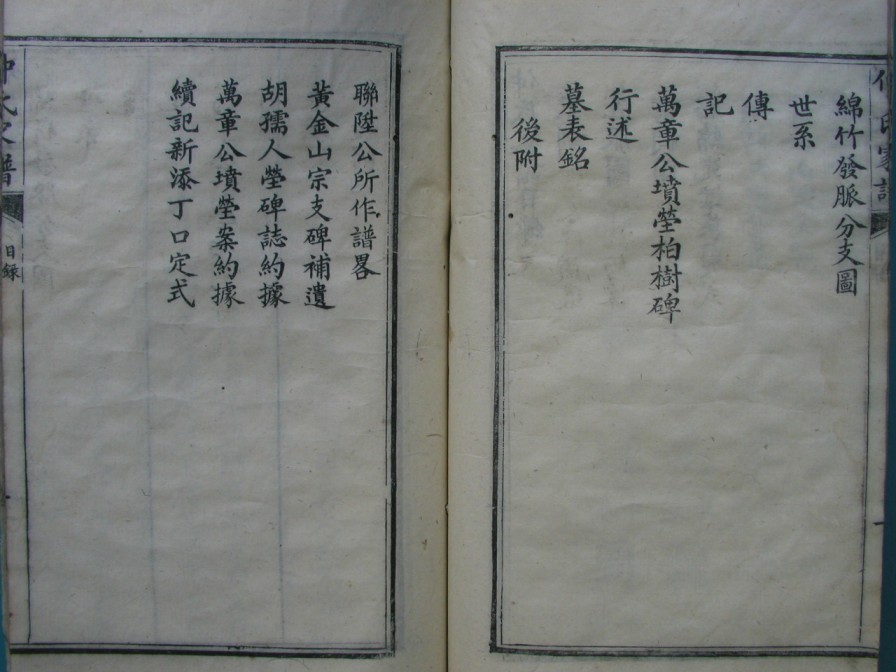 綿竹發脈分支圖
世系
傳
記
萬章公墳塋柏樹碑
行述
墓表銘
後附
聯陞公所作譜畧
黃金山宗支碑補遺
胡孺人塋碑誌約據
萬章公墳塋案約據
續記新添丁口定式
目錄